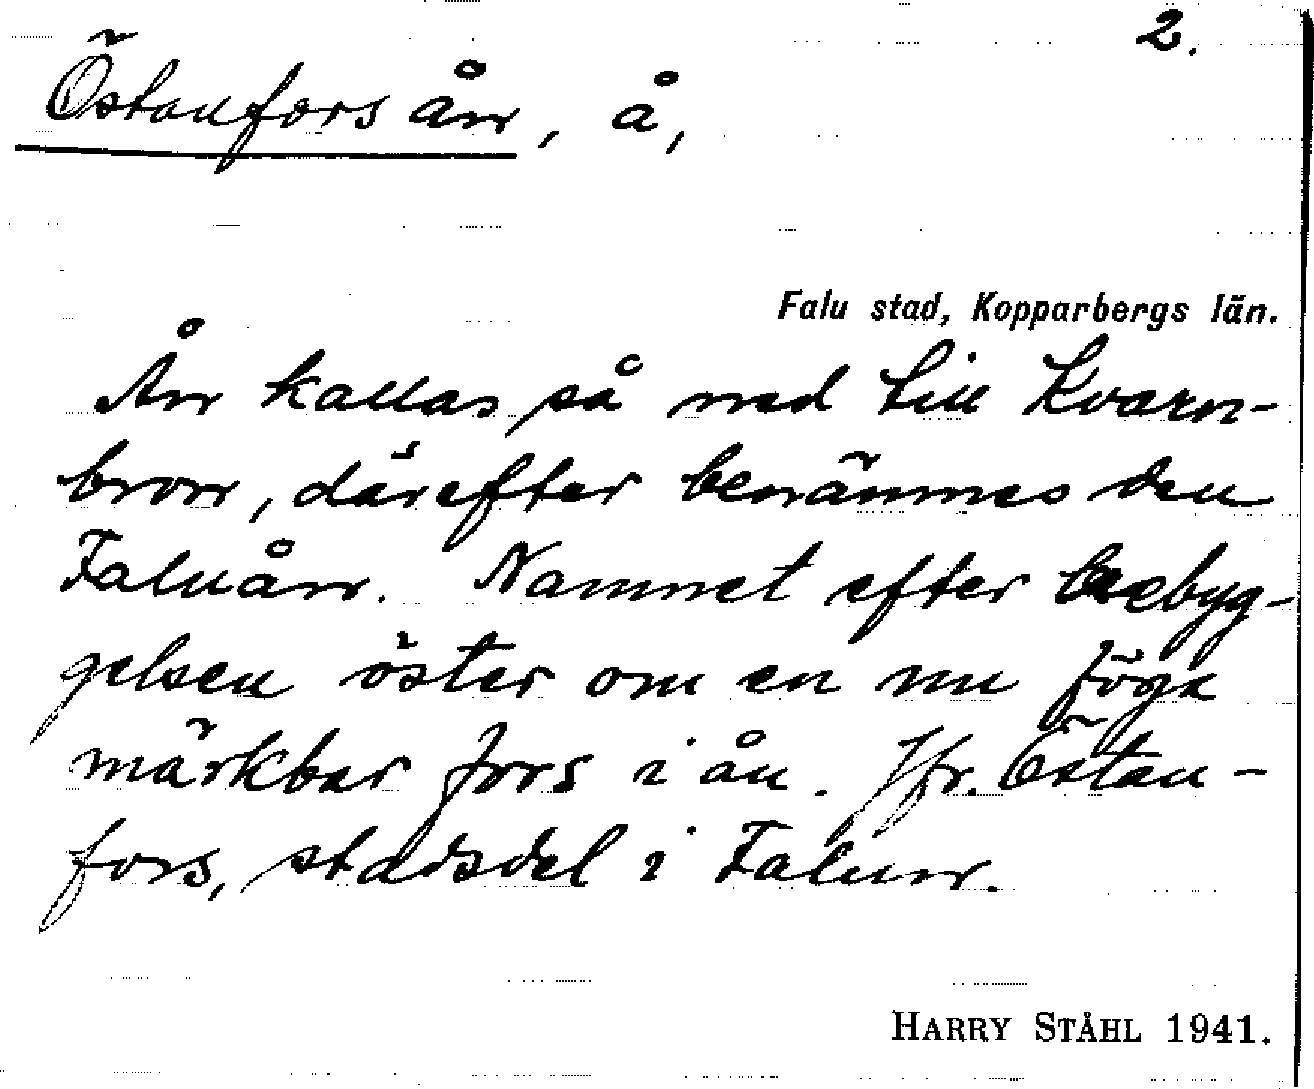 2.
Östanforsån, å,
Falu stad, Kopparbergs län.
Ån kallas så ned till Kvarn-
bron, därefter benämnes den
Faluån. Namnet efter bebyg-
gelsen öster om en nu föga
märkbar fors i ån. Jfr. Östan-
fors, stadsdel i Falun.
HARRY STÅHL 1941.